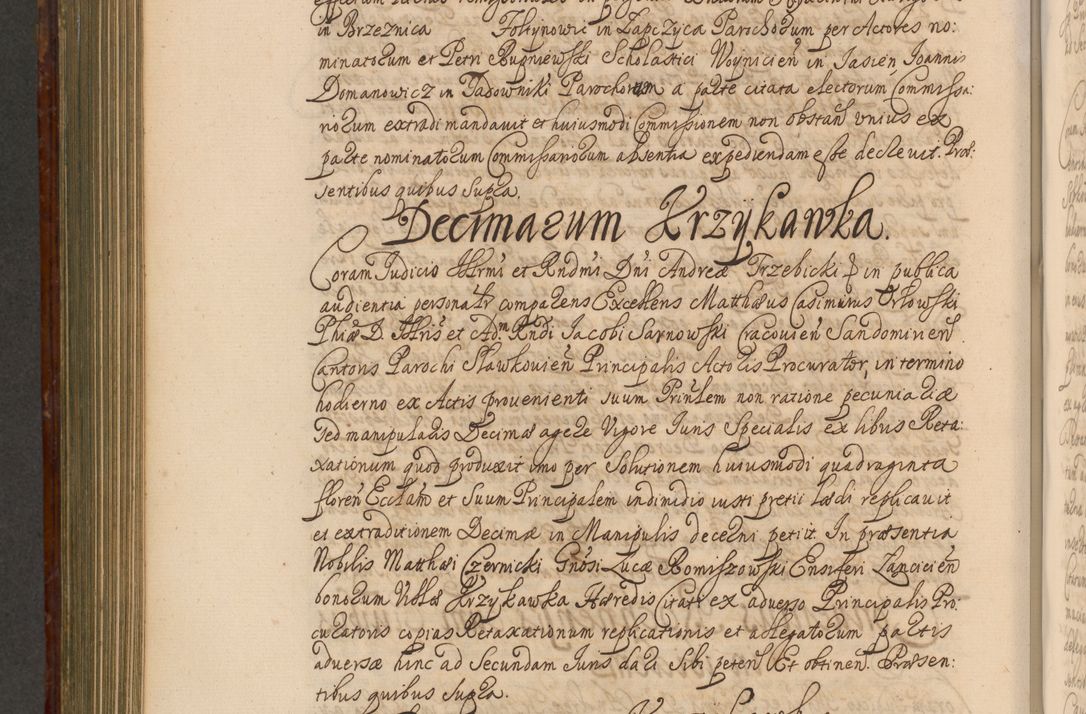 in Brzeznica Foltynowic in Lapczyca Parochorum per Actores no:
minatorum et Petri Rupniewski Scholastici Woynicien in Jasien, Joannis
Domanowicz in Tarowniki Parochorum a parte citata electorum Commissa:
riorum extradi mandavit et huiusmodi Commissionem non obstan unius ex
parte nominatorum Commissariorum absentia expediendam esse decrevit. Præ:
sentibus quibus supra.
Decimarum Krzykawka.
Coram Judicio Illrmi et Rndmi Dni Andreæ Trzebicki in publica
audientia personalr comparens Excellens Matthæus Casimirus Orłowski
Phiæ D. Illris et Adm Rndi Jacobi Sarnowski Cracovien Sandomirien
Cantoris Parochi Slawkovien Principalis Actoris Procurator, in termino
hodierno ex Actis provenienti suum Prinlem non ratione pecuniariæ
sed manipularis Decimæ agere Vigore Juris Specialis ex libris Reta:
xationum quod produxit imo per Solutionem huiusmodi quadraginta
floren Ecclam et Suum Principalem indimidio iusti pretii lædi replicavit
et extraditionem Decimæ in Manipulis decerni petiit. In præsentia
Nobilis Matthæi Czernicki Gnosi Lucæ Romiszowski Ensiferi Lancicien
bonorum Villæ Krzykawka Hæredis Citati ex adverso Principalis Pro:
curatoris copias Retaxationum replicationis et allegatorum partis
adversæ hinc ad Secundam Juris dari sibi peten Et obtinen. Præsen:
tibus quibus supra.